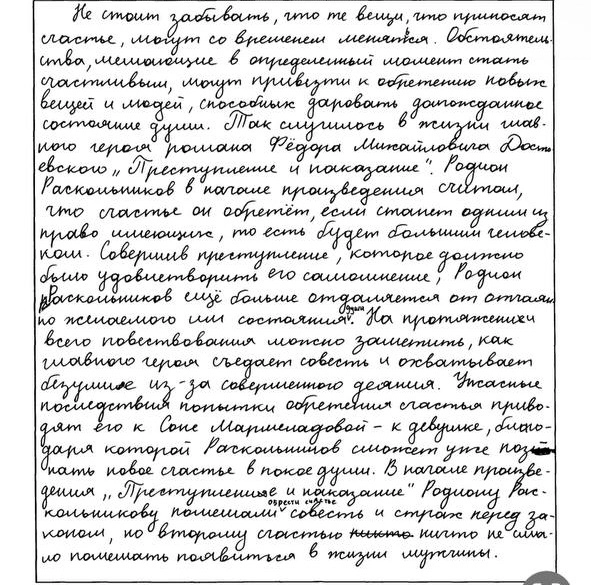 Не стоит забывать, что те вещи, что приносят
счастье, могут со временем меняться. Обстоятель-
ства, мешающие в определенный момент стать
счастливым, могут привезти к обретению новых
вещей и людей, способных даровать долгожданное
состояние души. Так случилось в жизни глав-
ного героя романа Фёдора Михайловича Досто
евского „Преступление и наказание". Родион
Раскольников в начале произведения считал,
что счастье он обретёт, если станет одним из
право имеющих, то есть будет большим челове-
ком. Совершив преступление, которое должно
было удовлетворить его самомнение, Родион
Раскольников ещё больше отдаляется от отчаян
но желаемого им состояния души. На протяжении
всего повествования можно заметить, как
главного героя съедает совесть и охватывает
безумие из-за совершенного деяния. Ужасные
последствия попытки обретения счастья приво-
дят его к Соне Мармеладовой – к девушке, благо-
даря которой Раскольников сможет уже поз
нать новое счастье в покое души. В начале произве-
дения „Преступление и наказание" Родиону Рас-
кольникову помешали обрести счастье совесть и страх перед за-
коном, но второму счастью никто ничто не смог-
ло помешать появиться в жизни мужчины.